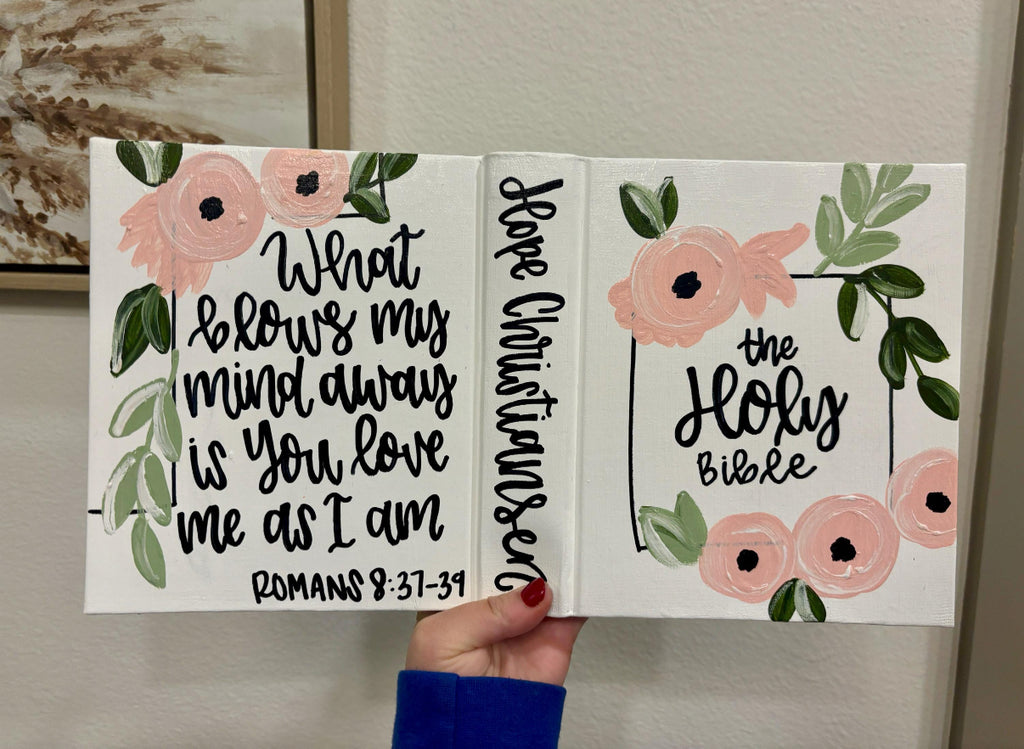 What
blows my
mind away
is You love
me as I am
ROMANS 8:37-39
Hope Christiansen
the
Holy
Bible